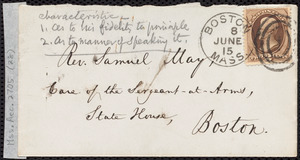 characteristic,
1. As to his fidelity to principle
2. As to manner of speaking it.
BOSTON
8
JUNE
15
MASS.
Rev. Samuel May,
Care of the Sergeant-at-Arms,
State House,
Boston.